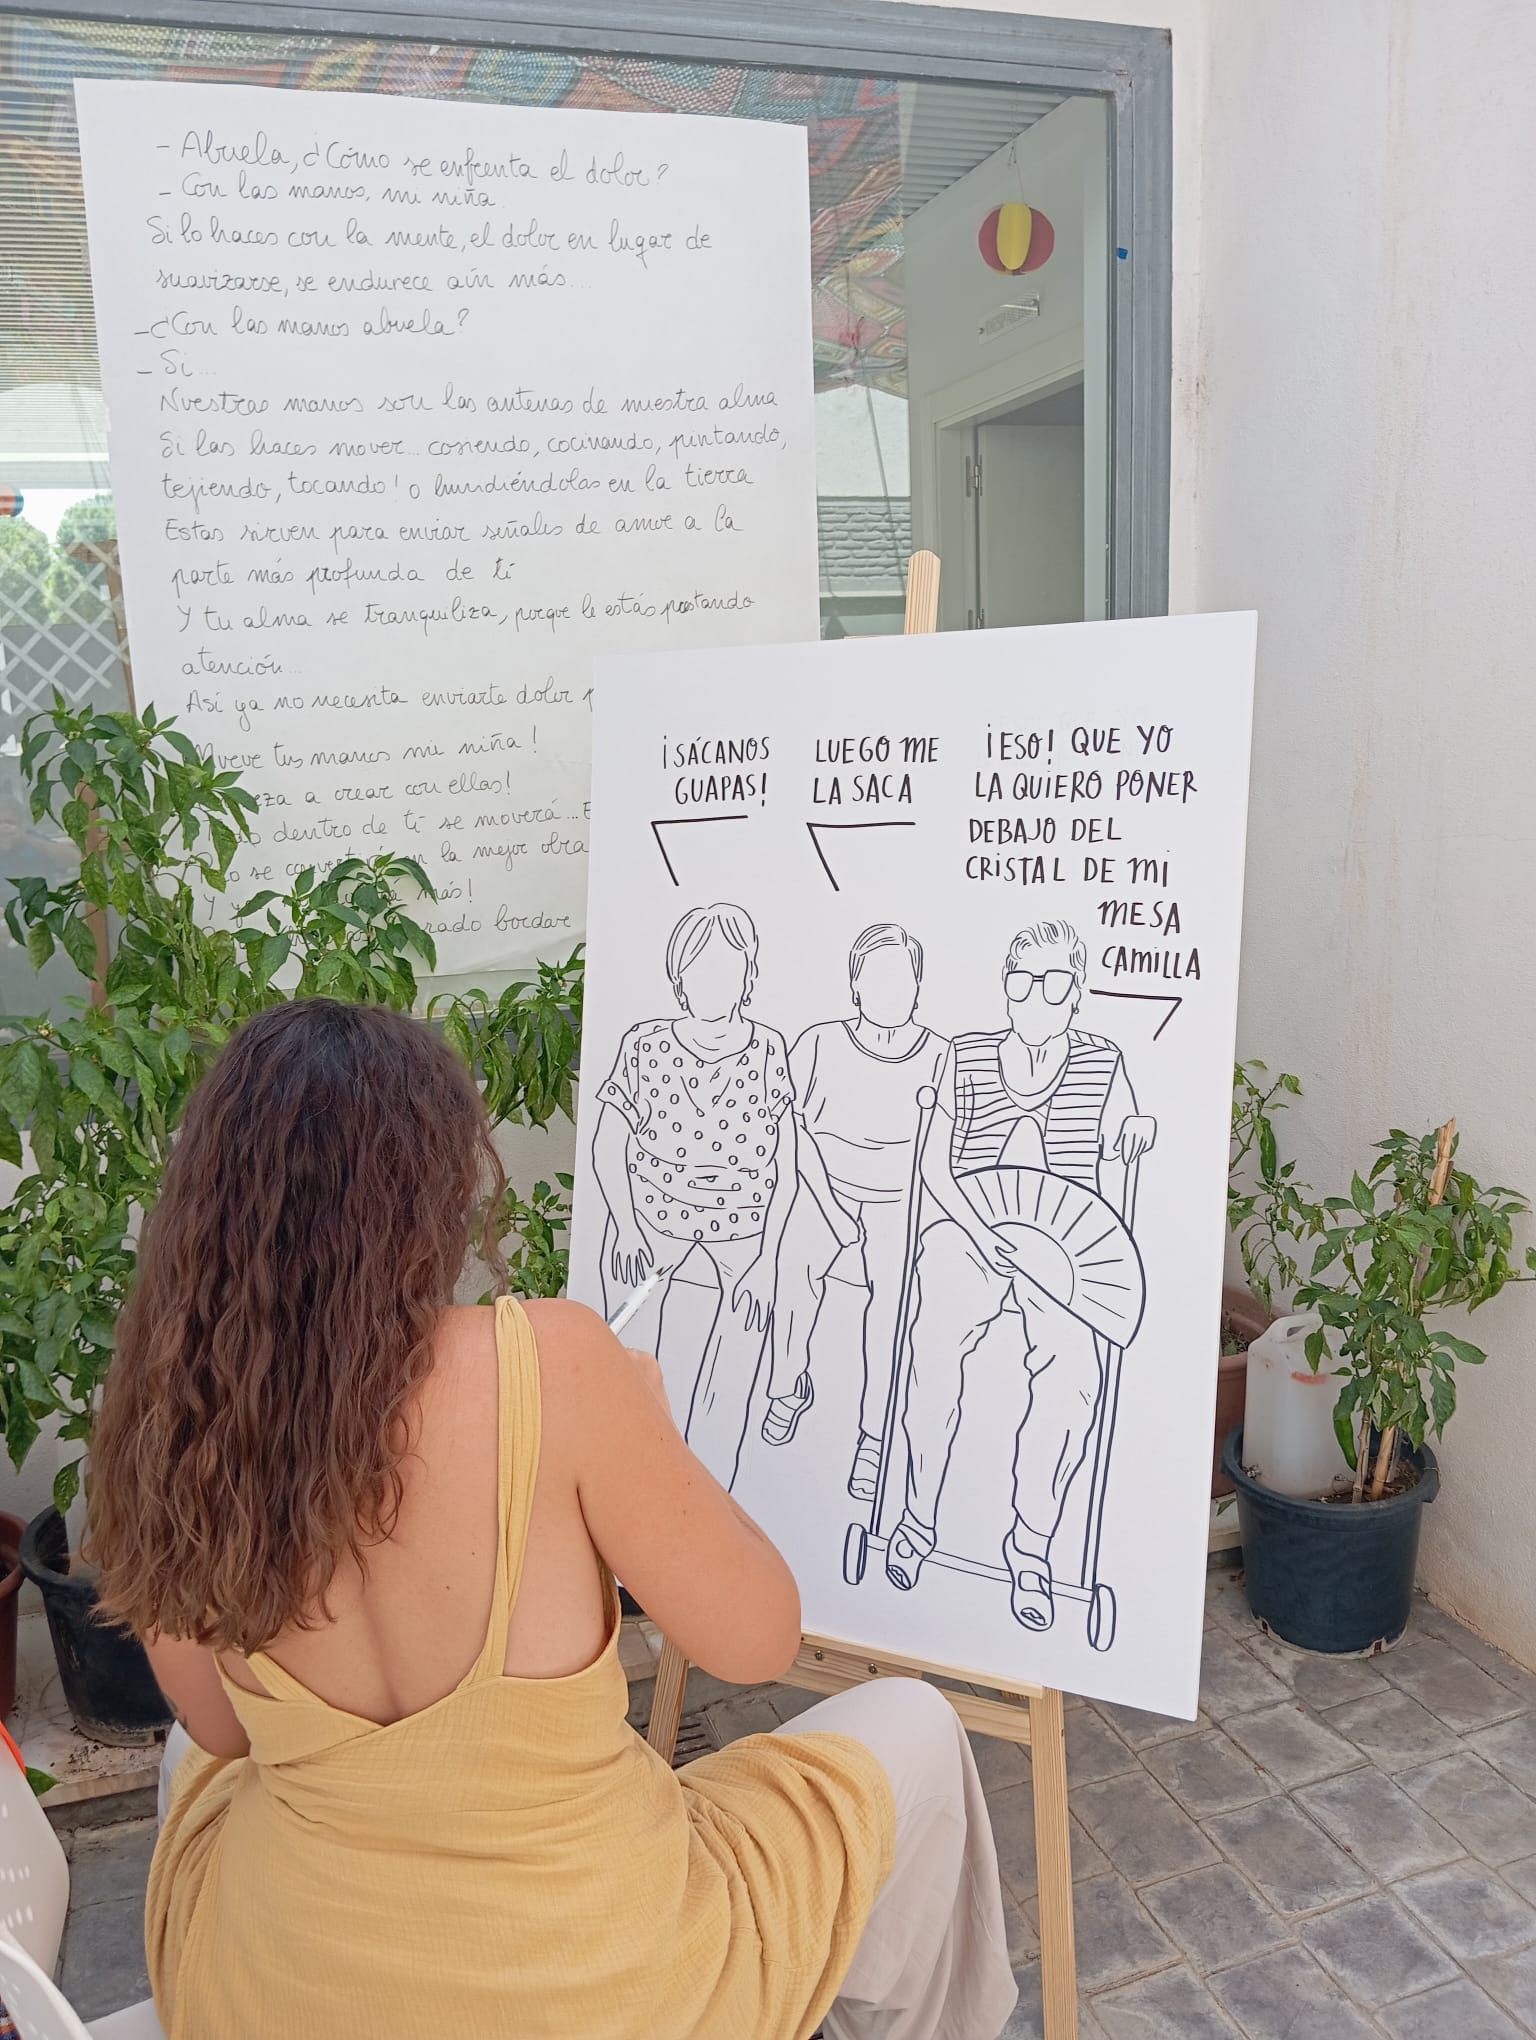 - Abuela, ¿Cómo se enfrenta el dolor?
- Con las manos, mi niña.
Si lo haces con la mente, el dolor en lugar de
suavizarse, se endurece aún más...
- ¿Con las manos abuela?
- Si...
Nuestras manos son las antenas de nuestra alma
Si las haces mover... cosiendo, cocinando, pintando,
tejiendo, tocando! o hundiéndolas en la tierra
Estas sirven para enviar señales de amor a la
parte más profunda de tí
Y tu alma se tranquiliza, porque le estás prestando
atención...
Así ya no necesita enviarte dolor
Mueve tus manos mi niña!
a crear con ellas!
dentro de tí se moverá...
se en la mejor obra
más!
bordar
¡SÁCANOS
GUAPAS!
LUEGO ME
LA SACA
¡ESO! QUE YO
LA QUIERO PONER
DEBAJO DEL
CRISTAL DE MI
MESA
CAMILLA